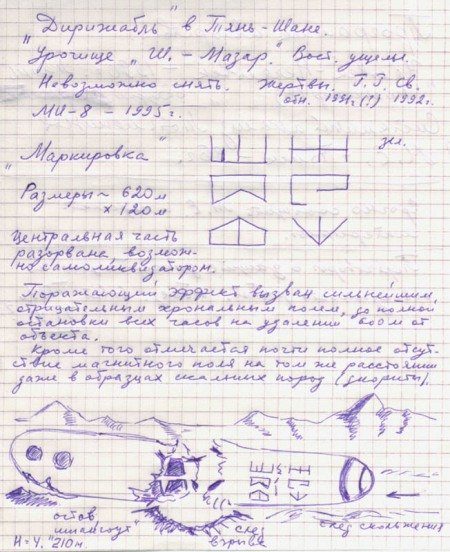 "Дирижабль" в Тянь-Шане.
Урочище "Ш.-Мазар." Вост. ущелье.
Невозможно снять. Жертвы. Г.Г. Св.
отн. 1991г.(?) 1992г.
МИ-8 – 1995г.
"Маркировка"
зел.
Размеры ~ 620м
х 120м
Центральная часть
разорвана, возмож-
но самоликвизатором.
Поражающий эффект вызван сильнейшим
отрицательным хрональным полем, до полной
остановки всех часов на удалении 600м от
объекта.
Кроме того отмечается почти полное отсут-
ствие магнитного поля на том же расстоянии
даже в образцах скальных пород (диориты).
остов
"шпангоут"
Н=Ч. 210м
след
взрыва
след скольжения